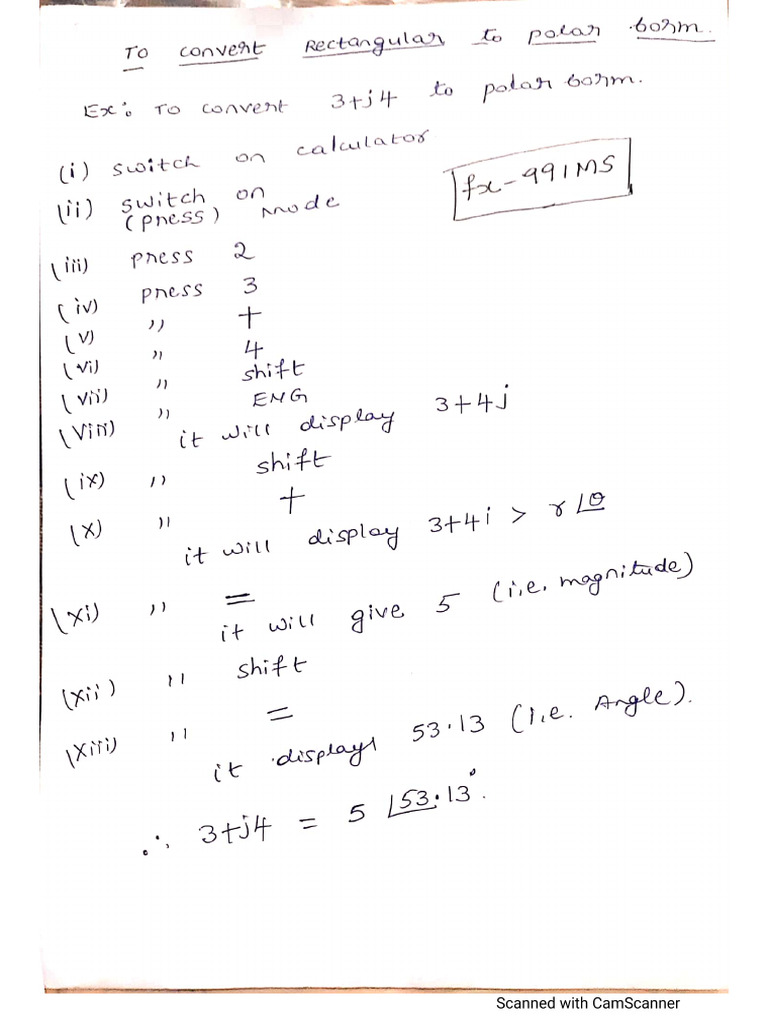 To convert Rectangular to polar form.
Ex: To convert 3+j4 to polar form.
(i) switch on calculator
fx-991MS
(ii) switch on mode
(press)
(iii) press 2
(iv) press 3
(v) " +
(vi) " 4
(vii) " shift
(viii) " ENG
it will display 3+4j
(ix) " shift
(x) " +
it will display 3+4i > r∠θ
(xi) " =
it will give 5 (i.e. magnitude)
(xii) " shift
(xiii) " =
it displays 53.13 (i.e. Angle).
∴ 3+j4 = 5 ∠53.13°.
Scanned with CamScanner